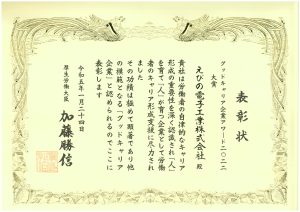 表彰状
グッドキャリア企業アワード二〇二二
大賞
えびの電子工業株式会社 殿
貴社は労働者の自律的なキャリア
形成の重要性を深く認識され「人」
を育て「人」が育つ企業として労働
者のキャリア形成支援に尽力され
ました
その功績は極めて顕著であり他
の模範となる「グッドキャリア
企業」と認められるのでここに
表彰します
令和五年一月二十四日
厚生労働大臣 加藤勝信